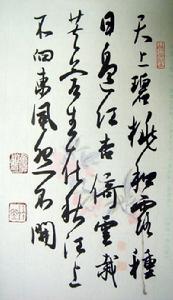 天上碧桃和露種
日邊紅杏倚雲栽
芙蓉生在秋江上
不向東風怨未開